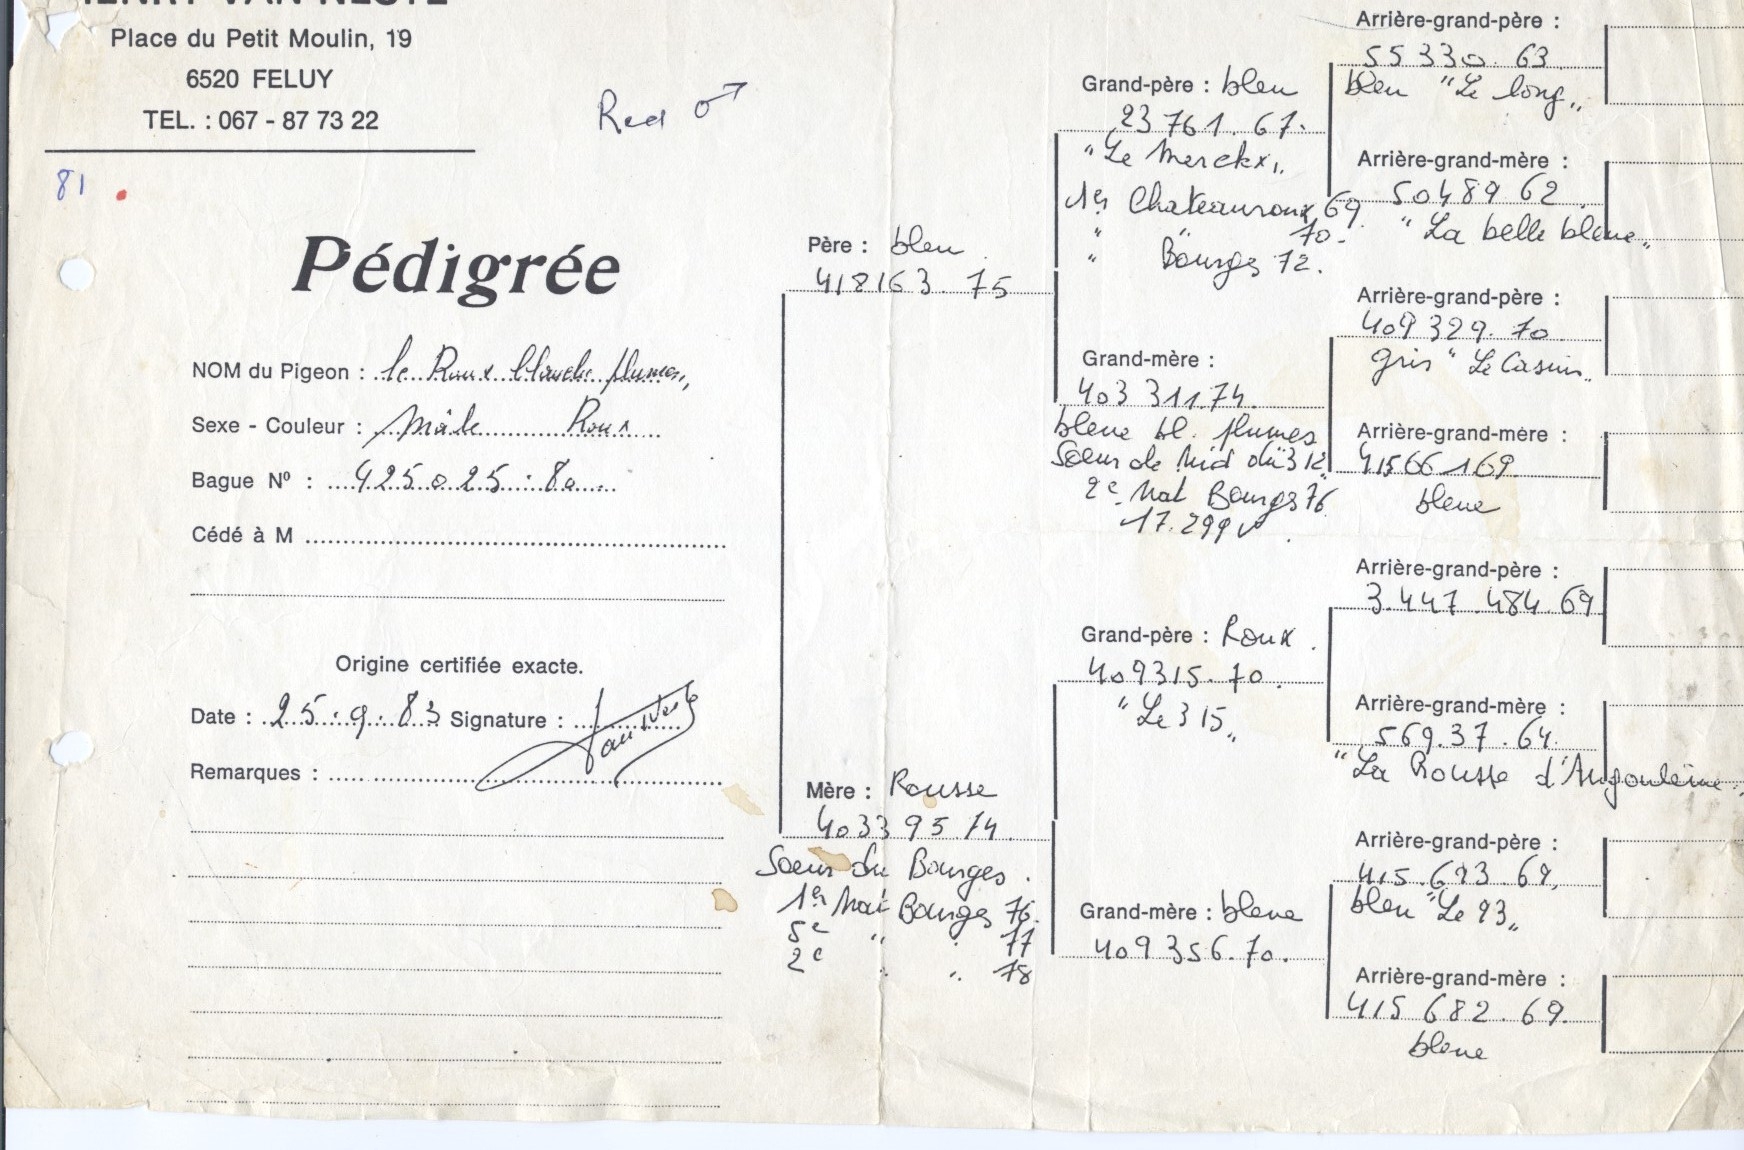 HENRY VAN NESTE
Place du Petit Moulin, 19
6520 FELUY
TEL. : 067 - 87 73 22
Red ♂
81
Pédigrée
NOM du Pigeon : le Roux blanche plumes"
Sexe - Couleur : Mâle Roux
Bague Nº : 425025.80
Cédé à M
Origine certifiée exacte.
Date : 25.9.83 Signature :
Remarques :
Père : bleu
418163 75
Mère : Rousse
403395 74
Soeur du Bourges.
1er Nat Bourges 76.
5e " " 77
2e " " 78
Grand-père : bleu
23761.67.
"Le Merckx"
1er Chateauroux 69
" " 70.
" Bourges 72.
Grand-mère :
403 311.74.
bleue bl. plumes
Soeur de Nid du 312
2e Nat Bourges 76
17.299 v
Grand-père : Roux.
409315.70.
"Le 315"
Grand-mère : bleue
409356.70.
Arrière-grand-père :
55330.63.
bleu "Le long"
Arrière-grand-mère :
50489 62.
"La belle bleue"
Arrière-grand-père :
409329.70.
gris "Le Casim"
Arrière-grand-mère :
415661 69
bleue
Arrière-grand-père :
3.447.484.69
Arrière-grand-mère :
569.37.64.
"La Rousse d'Angoulème"
Arrière-grand-père :
415.693.69.
bleu "Le 93"
Arrière-grand-mère :
415 682.69.
bleue